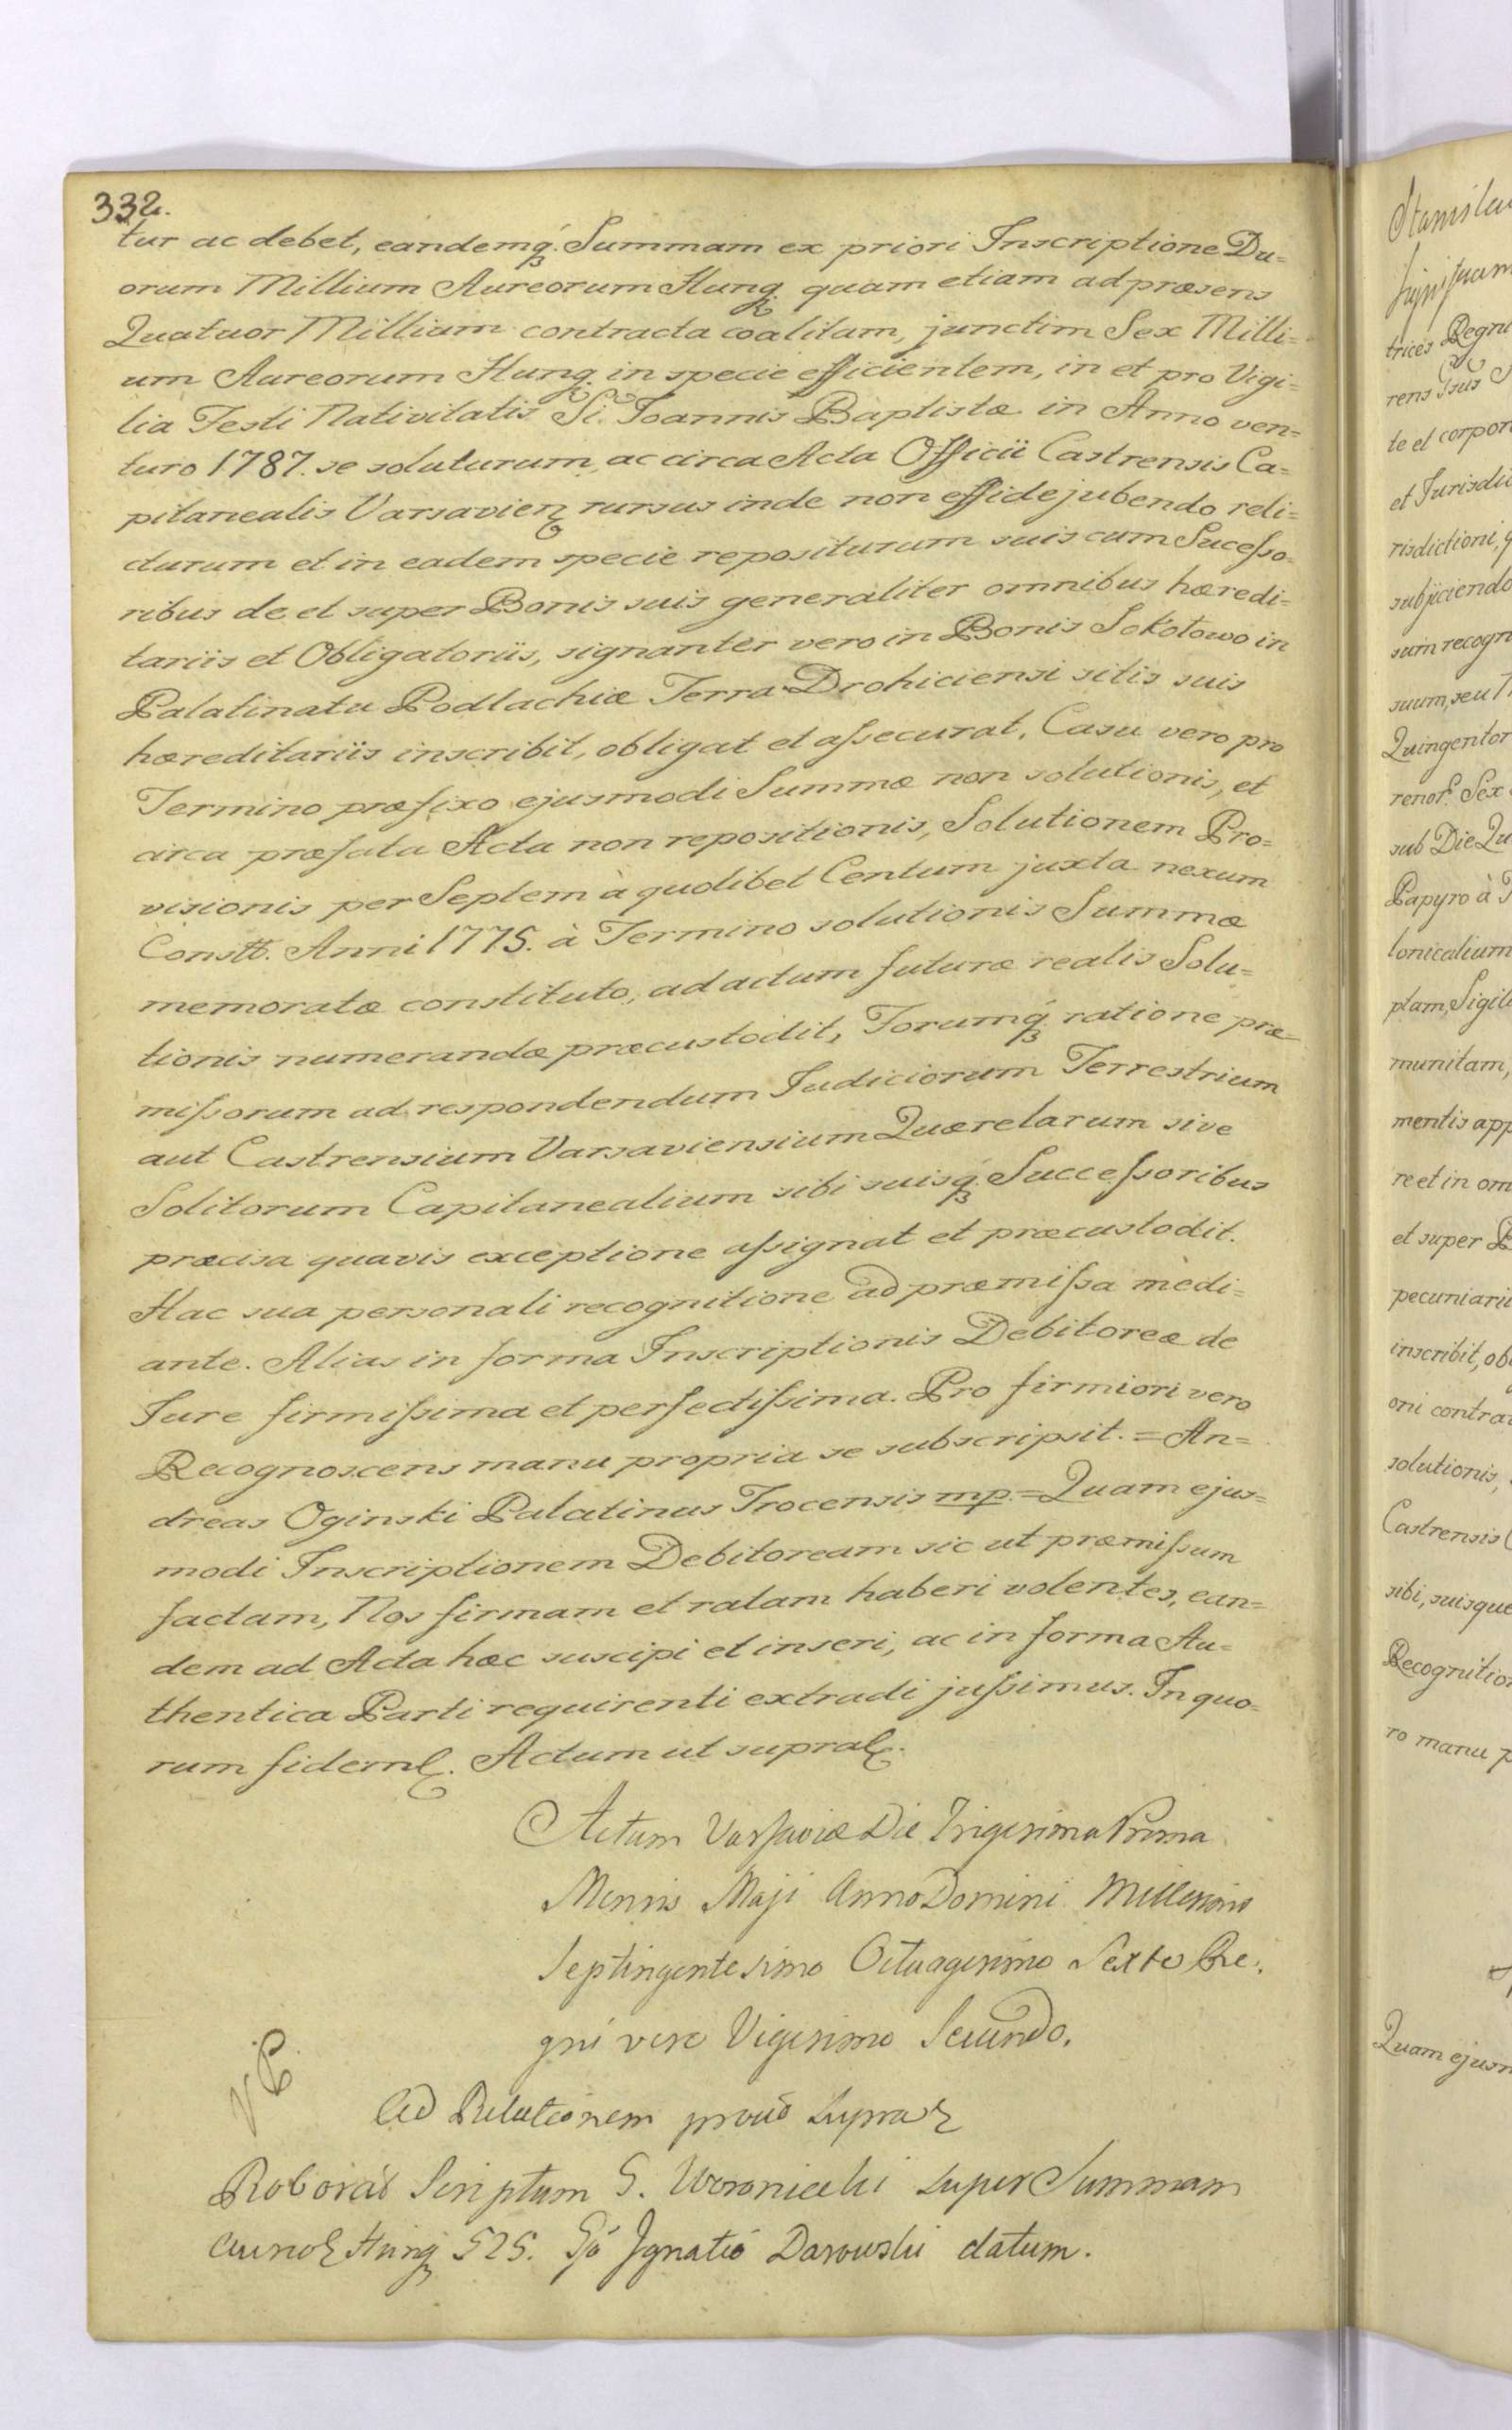 332.
tur ac debet, eandemq́. Summam ex priori Inscriptione Du=
orum Millium Aureorum Hung. quam etiam ad præsens
Quatuor Millium contracta coalitam, junctim Sex Milli=
um Aureorum Hung. in specie efficientem, in et pro Vigi=
lia Festi Nativitatis Si. Joannis Baptistæ in Anno ven=
turo 1787. se soluturum, ac circa Acta Officii Castrensis Ca=
pitanealis Varsavien rursus inde non effidejubendo reli=
cturum et in eadem specie repositurum suis cum Sucesso=
ribus de et super Bonis suis generaliter omnibus hæredi=
tariis et Obligatoriis, signanter vero in Bonis Sokołowo in
Palatinatu Podlachiæ Terra Drohiciensi sitis suis
hæreditariis inscribit, obligat et assecurat. Casu vero pro
Termino præfixo ejusmodi Summæ non solutionis, et
circa præfata Acta non repositionis, Solutionem Pro=
visionis per Septem à quolibet Centum juxta nexum
Constt. Anni 1775. à Termino solutionis Summæ
memoratæ constituto, ad actum futuræ realis Solu=
tionis numerandæ præcustodit, Forumq́ ratione præ
missorum ad respondendum Judiciorum Terrestrium
aut Castrensium Varsaviensium Quærelarum sive
Solitorum Capitanealium sibi suisq́. Successoribus
præcisa quavis exceptione assignat et præcustodit.
Hac sua personali recognitione ad præmissa medi=
ante. Alias in forma Inscriptionis Debitoreæ de
Jure firmissima et perfectissima. Pro firmiori vero
Recognoscens manu propria se subscripsit. = An=
dreas Oginski Palatinus Trocensis mp. = Quam ejus=
modi Inscriptionem Debitoream sic ut præmissum
factam, Nos firmam et ratam haberi volentes, ean=
dem ad Acta hæc suscipi et inseri, ac in forma Au=
thentica Parti requirenti extradi jussimus. In quo=
rum fidem. Actum ut supra.
Actum Varsaviæ Die Trigesima Prima
Mensis Maji Anno Domini Millesimo
Septingentesimo Octuagesimo Sexto Re=
gni vero Vigesimo Secundo.
Ad Relationem prout supra
Roborat Scriptum G. Woronicki super Summam
Hung 525. Ignatio Darowski datum.
Stanisla
trices Regni
rens
te et corpor
et Jurisdi
risdictioni, q
subjiciendo
sum recogn
suum, seu
Quingentor
renor. Sex
sub Die Qu
Papyro à
lonicalium
ptam, Sigil
munitam,
mentis app
re et in om
et super
pecuniarii
inscribit, ob
oni contra
solutionis,
Castrensis
sibi, suisque
Recognitio
ro manu p
Quam ejusm